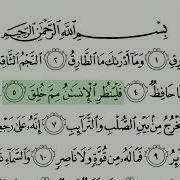 بِسْمِ اللَّهِ الرَّحْمَٰنِ الرَّحِيمِ
رِقِ ١ وَمَا أَدْرَىٰكَ مَا الطَّارِقُ ٢ النَّجْمُ الثَّاقِ
حَافِظٌ ٤ فَلْيَنظُرِ الْإِنسَٰنُ مِمَّ خُلِقَ ٥
خْرُجُ مِنۢ بَيْنِ الصُّلْبِ وَالتَّرَآئِبِ ٧ إِنَّهُۥ عَلَىٰ رَجْعِ
٩ فَمَا لَهُۥ مِن قُوَّةٍ وَلَا نَاصِرٍ ١٠ وَالسَّمَآءِ ذَا